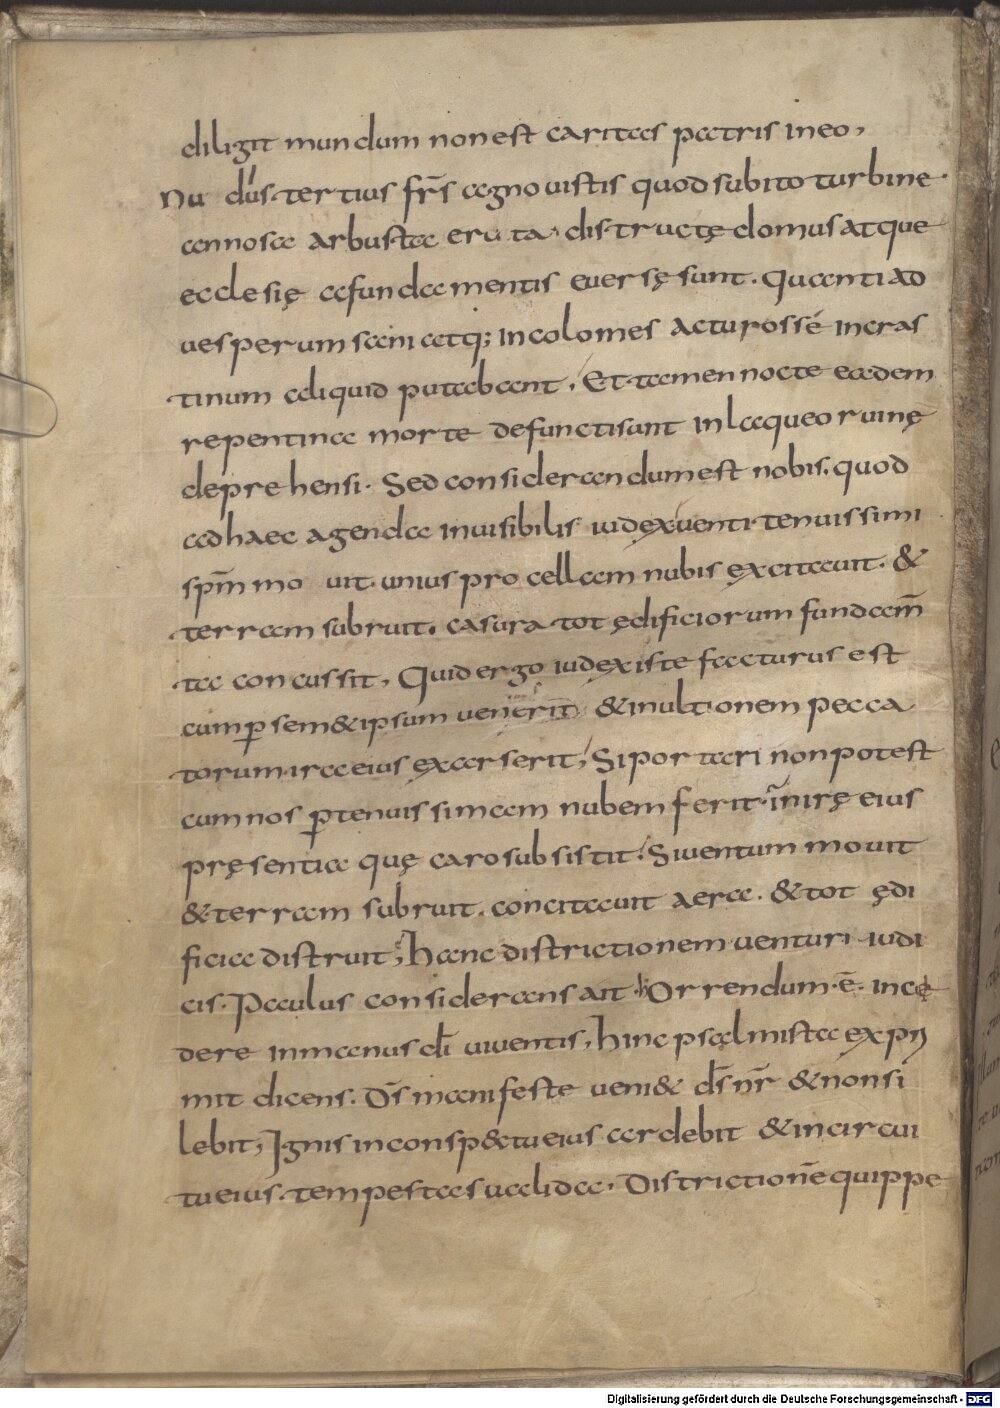 diligit mundum non est caritas patris in eo,
Nu dius tertius frs agnovistis quod subito turbine
annosa arbusta eruta distructę domus atque
ecclesię a fundamentis eversę sunt. Quanti ad
vesperum sani atq; incolomes acturos sé in cras
tinum aliquid putabant, Et tamen nocte eadem
repentina morte defuncti sunt in laqueo ruinę
deprehensi. Sed considerandum est nobis, quod
ad haec agenda invisibilis iudex venti tenuissimi
spm mo vit. unius procellam nubis excitavit. &
terram subruit. casura tot ędificiorum fundam̄
ta concussit, Quid ergo iudex iste facturus est
cum p sem&ipsum venerit & in ultionem pecca
torum ira eius exarserit, Si portari non potest
cum nos p tenuissimam nubem ferit. in irę eius
pręsentia quę caro subsistit. Si ventum movit
& terram subruit. concitavit aera. & tot ędi
ficia distruit, hanc districtionem venturi iudi
cis. Paulus considerans ait hOrrendum ē. incę
dere in manus di viventis, hinc psalmista expri
mit dicens. Ds manifeste veni& ds nr & non si
lebit, Ignis in consp&tu eius ardebit & in circui
tu eius. tempestas valida. Districtionē quippe
Digitalisierung gefördert durch die Deutsche Forschungsgemeinschaft - DFG